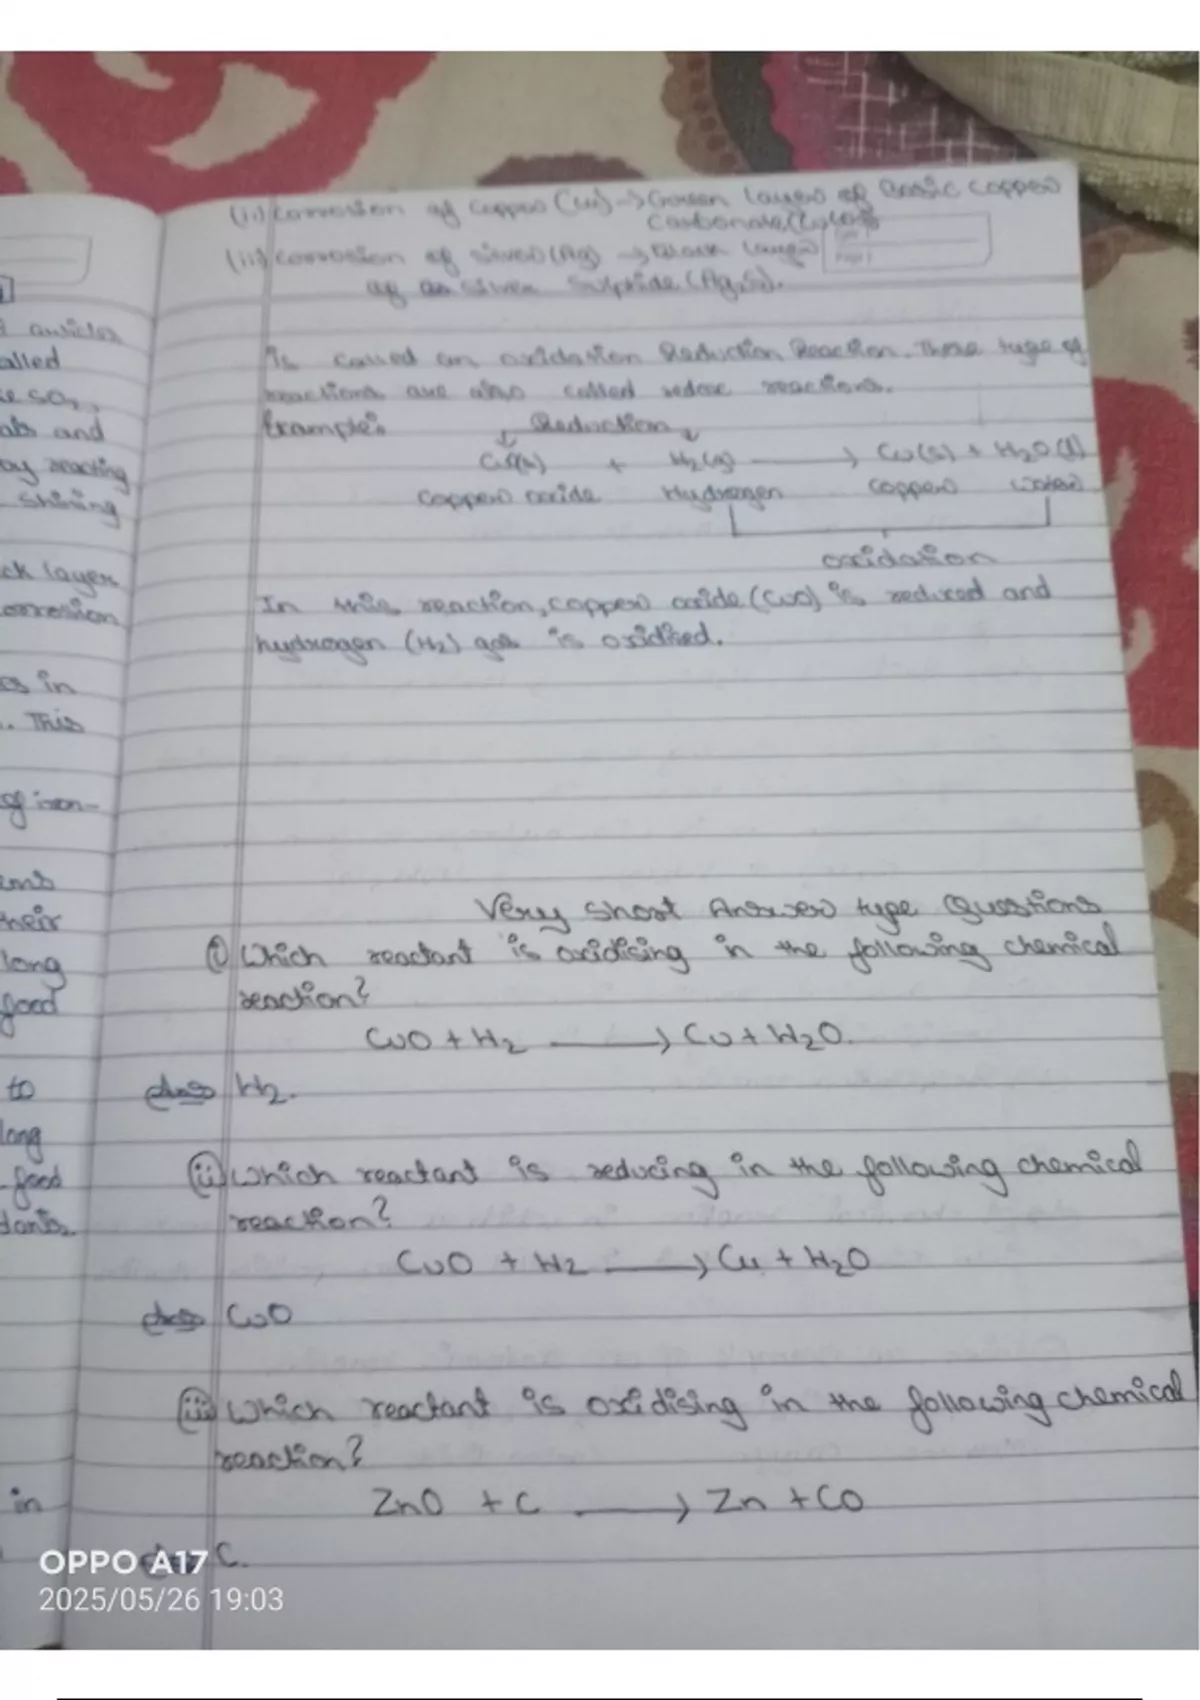 (ii) Corrosion of Copper (Cu) → Green layer of Basic Copper
Carbonate
(iii) Corrosion of silver (Ag) → Black layer
of silver Sulphide (Ag2S).
is called an oxidation Reduction Reaction. These type of
reactions are also called redox reactions.
Example:
Reduction
CuO(s) + H2(g) → Cu(s) + H2O(l)
Copper oxide Hydrogen Copper water
oxidation
In this reaction, copper oxide (CuO) is reduced and
hydrogen (H2) gas is oxidised.
Very Short Answer type Questions
(i) Which reactant is oxidising in the following chemical
reaction?
CuO + H2 → Cu + H2O.
Ans H2.
(ii) Which reactant is reducing in the following chemical
reaction?
CuO + H2 → Cu + H2O
Ans CuO
(iii) Which reactant is oxidising in the following chemical
reaction?
ZnO + C → Zn + CO
Ans C.
articles
alled
SO2,
and
by reacting
shining
ck layer
orrosion
es in
. This
of iron-
ems
their
long
food
to
long
food
in
OPPO A17
2025/05/26 19:03